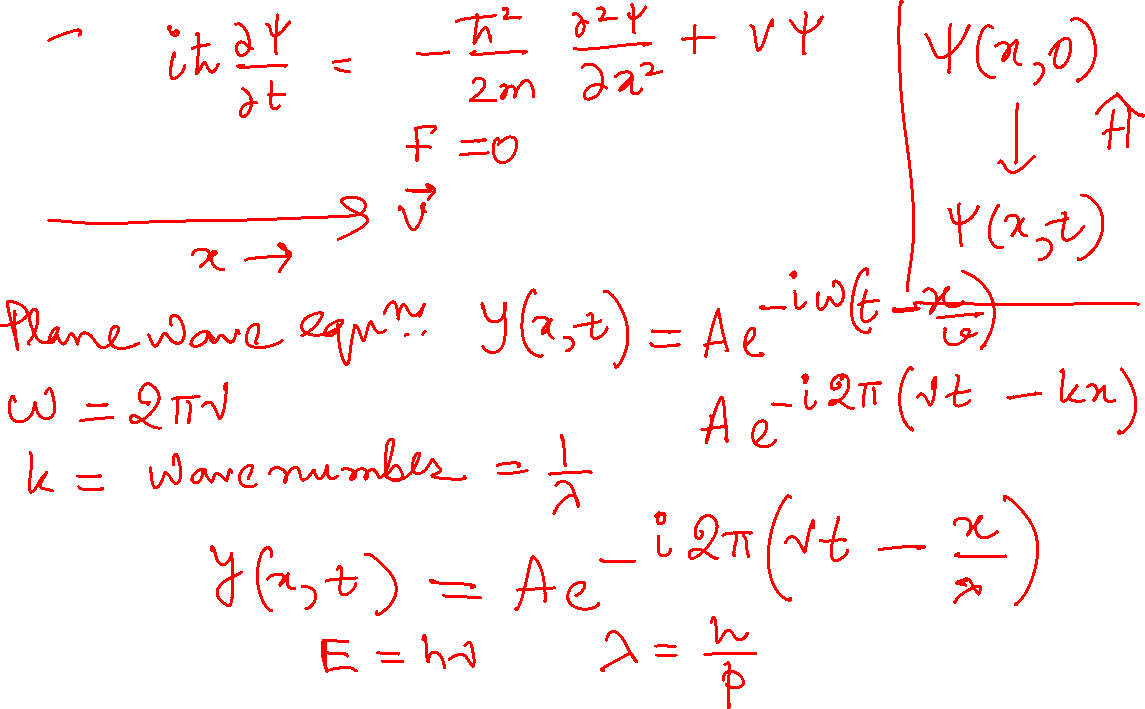 iħ ∂Ψ/∂t = - ħ²/2m ∂²Ψ/∂x² + VΨ
F = 0
x → v⃗
Ψ(x,0)
↓ Ĥ
Ψ(x,t)
Plane wave eqnⁿ: y(x,t) = A e^{-iω(t - x/v)}
ω = 2πν
A e^{-i2π(νt - kx)}
k = wave number = 1/λ
y(x,t) = A e^{-i2π(νt - x/λ)}
E = hν λ = h/p